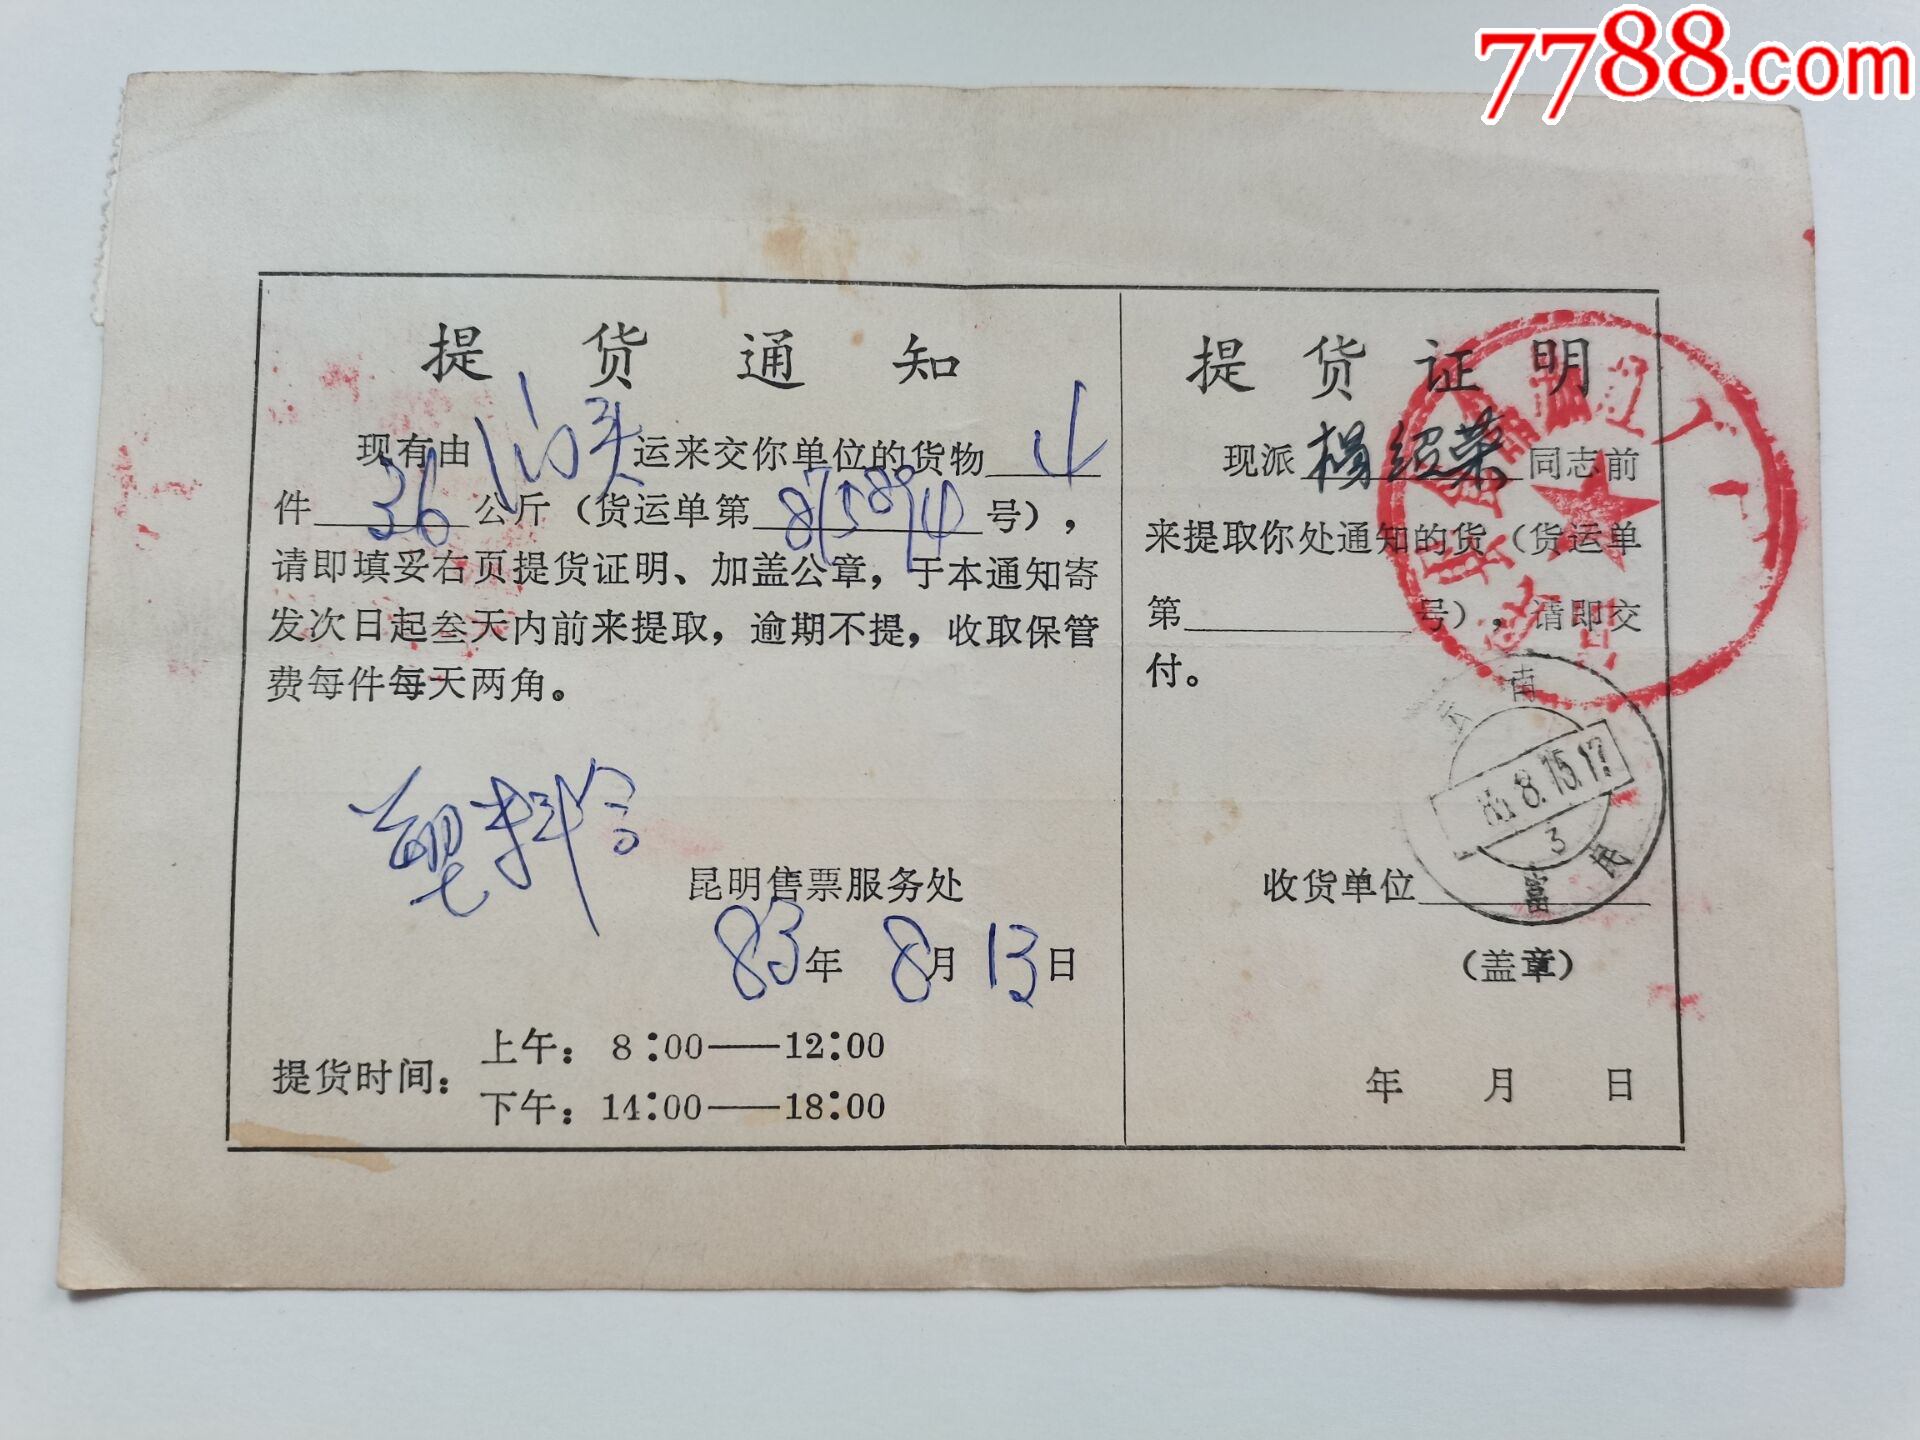 7788.com
提货通知
现有由汕头运来交你单位的货物4
件36公斤（货运单第875894号），
请即填妥右页提货证明、加盖公章，于本通知寄
发次日起叁天内前来提取，逾期不提，收取保管
费每件每天两角。
塑料
昆明售票服务处
83年8月13日
提货时间：
上午：8:00——12:00
下午：14:00——18:00
提货证明
现派杨绍荣同志前
来提取你处通知的货（货运单
第 号），请即交
付。
云南
8.15.17
3
富民
收货单位
（盖章）
年 月 日